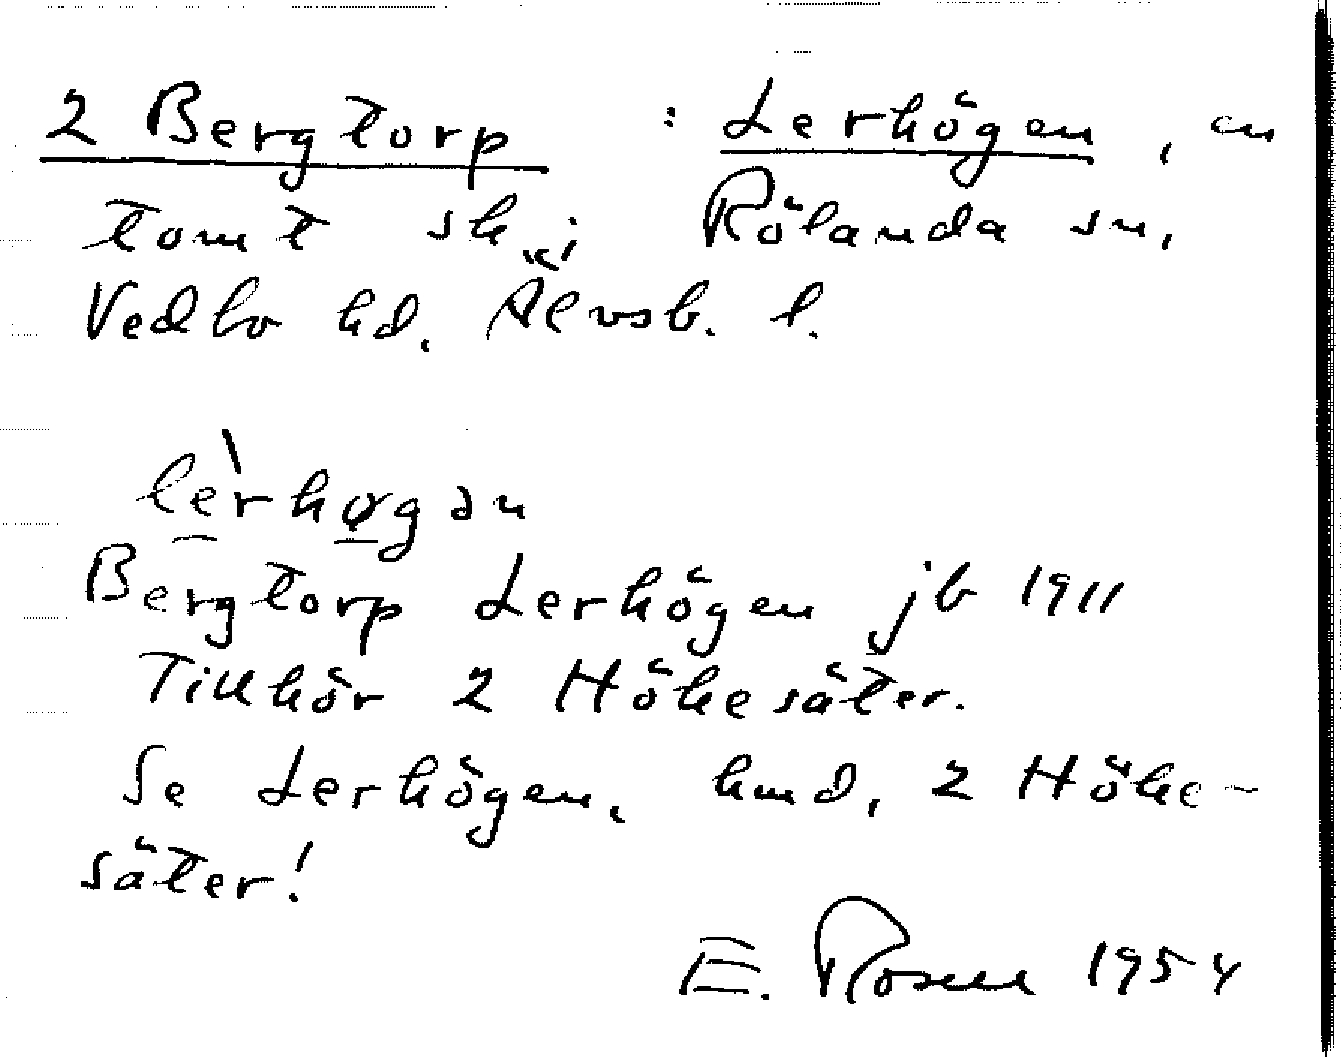 2 Bergtorp : Lerhögen, en
tomt sk. i Rölanda sn,
Vedbo hd. Älvsb. l.
lèrhøgən
Bergtorp Lerhögen jb 1911
Tillhör 2 Hökesäter.
Se Lerhögen, hmd, 2 Höke-
säter!
E. Rosell 1954